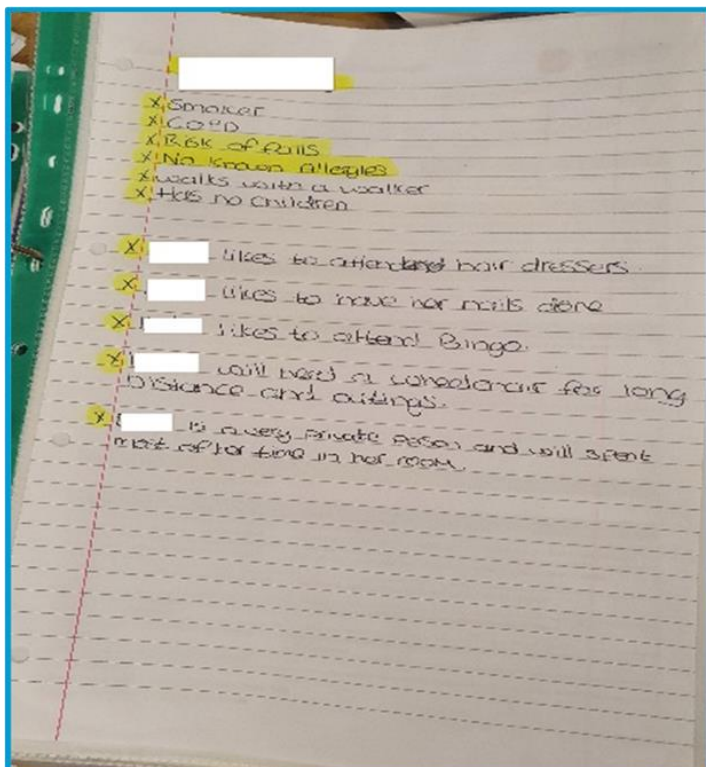 x Smoker
x COPD
x Risk of falls
x No known allergies
x walks with a walker
x Has no children
x likes to attend hair dressers.
x likes to have her nails done
x likes to attend Bingo.
x will need a wheelchair for long
Distance and outings.
x is a very private person and will spent
most of her time in her room.